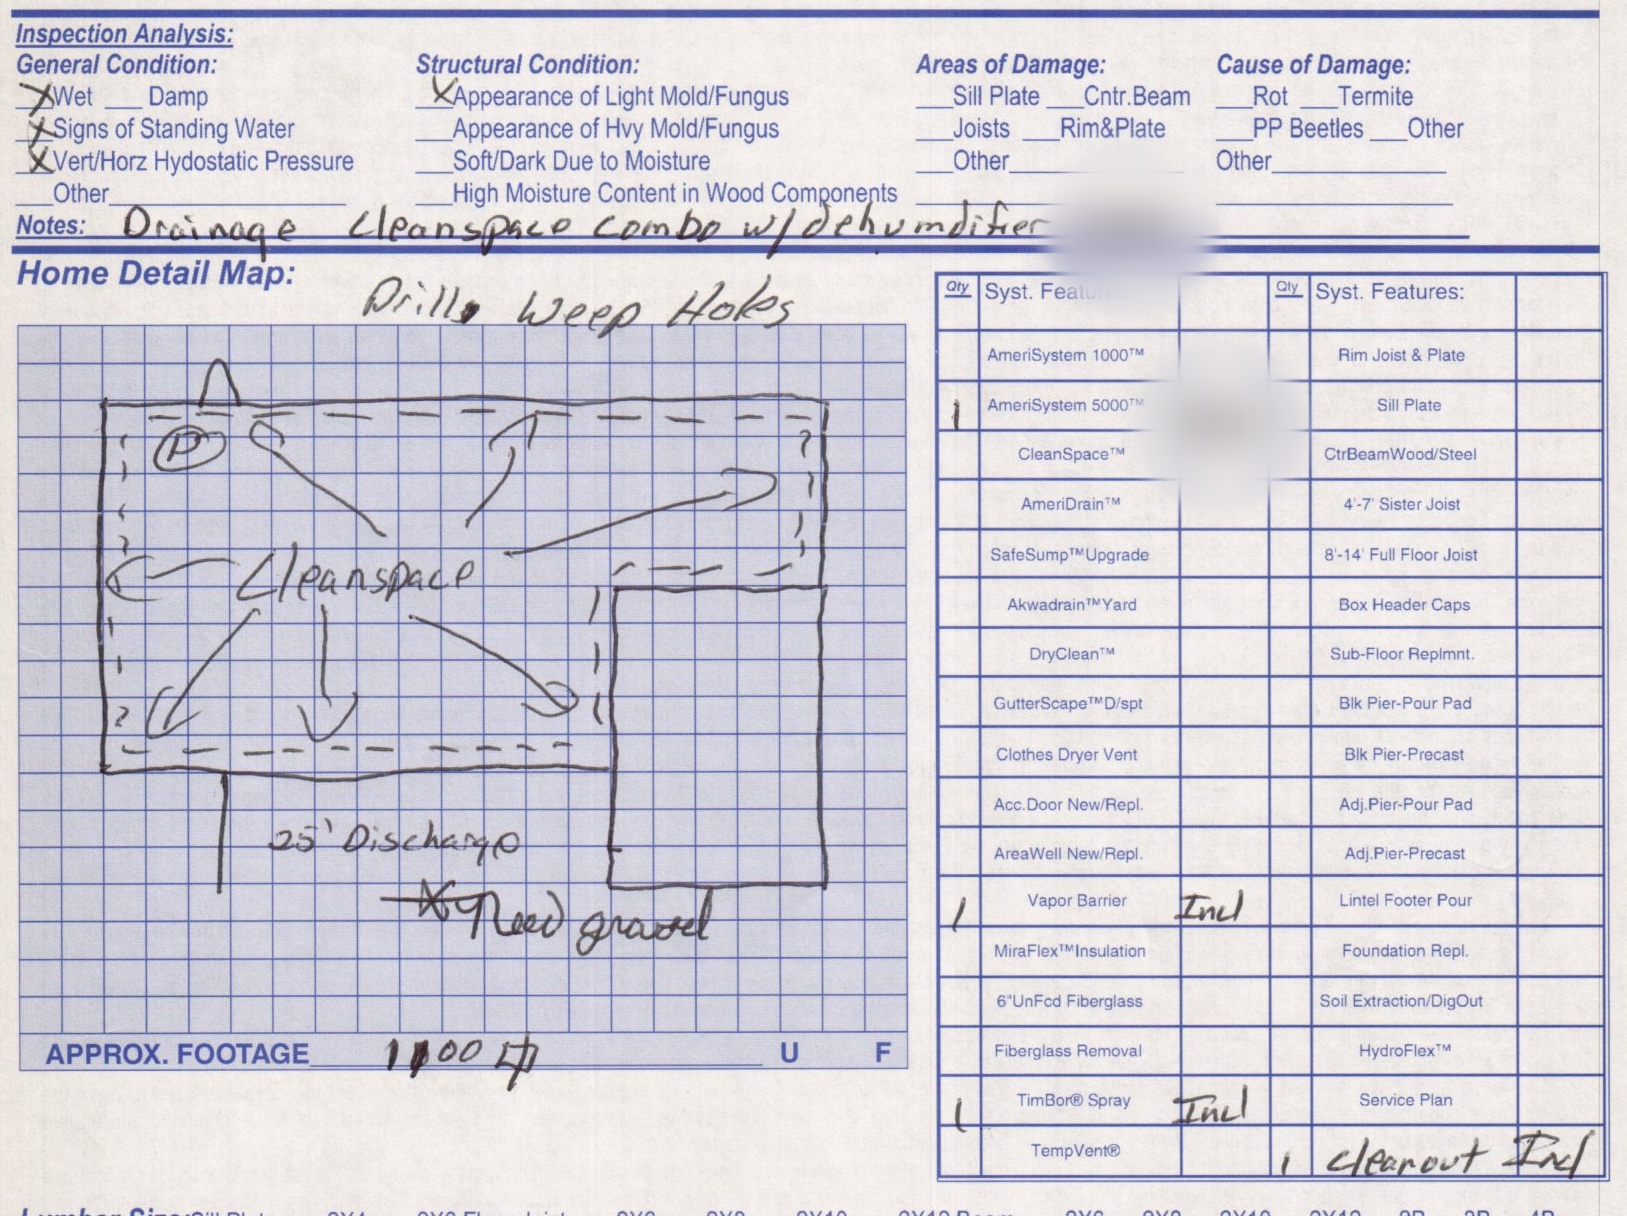 Inspection Analysis:
General Condition: Structural Condition: Areas of Damage: Cause of Damage:
X Wet ___ Damp X Appearance of Light Mold/Fungus ___Sill Plate ___Cntr.Beam ___Rot ___Termite
X Signs of Standing Water ___Appearance of Hvy Mold/Fungus ___Joists ___Rim&Plate ___PP Beetles ___Other
X Vert/Horz Hydostatic Pressure ___Soft/Dark Due to Moisture ___Other___ Other___
___Other___ ___High Moisture Content in Wood Components
Notes: Drainage Cleanspace combo w/dehumdifier
Home Detail Map:
Drill Weep Holes
P
Cleanspace
25' Discharge
X Need gravel
APPROX. FOOTAGE 1100 U F
Qty Syst. Features: Qty Syst. Features:
AmeriSystem 1000™ Rim Joist & Plate
1 AmeriSystem 5000™ Sill Plate
CleanSpace™ CtrBeamWood/Steel
AmeriDrain™ 4'-7' Sister Joist
SafeSump™Upgrade 8'-14' Full Floor Joist
Akwadrain™Yard Box Header Caps
DryClean™ Sub-Floor Replmnt.
GutterScape™D/spt Blk Pier-Pour Pad
Clothes Dryer Vent Blk Pier-Precast
Acc.Door New/Repl. Adj.Pier-Pour Pad
AreaWell New/Repl. Adj.Pier-Precast
1 Vapor Barrier Incl Lintel Footer Pour
MiraFlex™Insulation Foundation Repl.
6"UnFcd Fiberglass Soil Extraction/DigOut
Fiberglass Removal HydroFlex™
1 TimBor® Spray Incl Service Plan
TempVent® 1 cleanout Incl